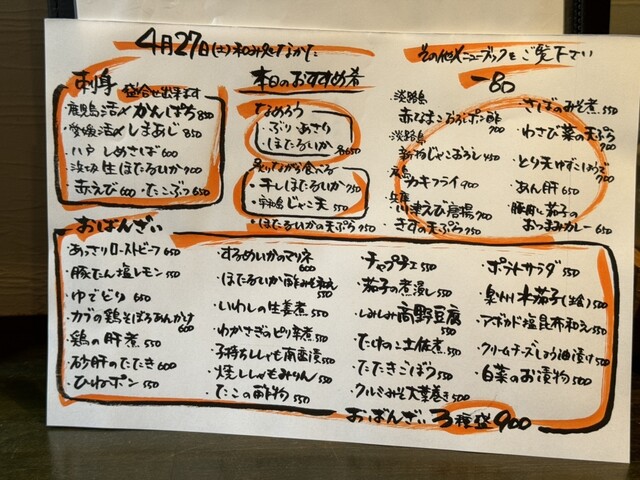 4月27日(土)和み処なかた
その他メニューブックをご覧下さい
刺身 盛合せ出来ます
・鹿児島活〆かんぱち 850
・愛媛活〆しまあじ 850
・八戸 しめさば 600
・浜坂 生ほたるいか 900
・赤えび 600・たこぶつ 650
本日のおすすめ肴
なめろう
・ぶり・あさり
・ほたるいか 各650
炙りながら食べる
・干しほたるいか 750
・宇和島じゃこ天 550
・ほたるいかの天ぷら 750
一品
・淡路島
赤なまこおろしポン酢 700
・淡路島
新物じゃこおろし 450
・広島
カキフライ 900
・兵庫
川津えび唐揚 700
・きすの天ぷら 750
・さばのみそ煮 750
・わさび菜の天ぷら 700
・とり天ゆずこしょうで 700
・あん肝 650
・豚肉と茄子の
おつまみカレー 650
おばんざい
・あっさりローストビーフ 650
・豚たん塩レモン 550
・ゆでどり 650
・カブの鶏そぼろあんかけ 600
・鶏の肝煮 550
・砂肝のたたき 600
・ひねポン 550
・するめいかのマリネ 600
・ほたるいか酢みそ和え 550
・いわしの生姜煮 550
・わかさぎのピリ辛煮 550
・子持ちししゃも南蛮漬 550
・焼ししゃもみりん 550
・たこの酢物 550
・チャプチェ 550
・茄子の煮浸し 550
・しみしみ高野豆腐 550
・たけのこ土佐煮 550
・たたきごぼう 550
・クルミみそ大葉巻き 500
・ポテトサラダ 550
・泉州水茄子(浅漬) 500
・アボカド塩昆布和え 550
・クリームチーズしょう油漬け 550
・白菜のお漬物 500
おばんざい3種盛 900